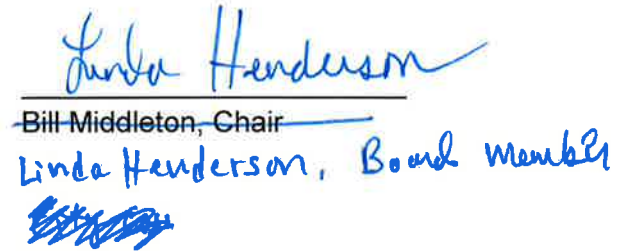 Linda Henderson
Bill Middleton, Chair
Linda Henderson, Board Member